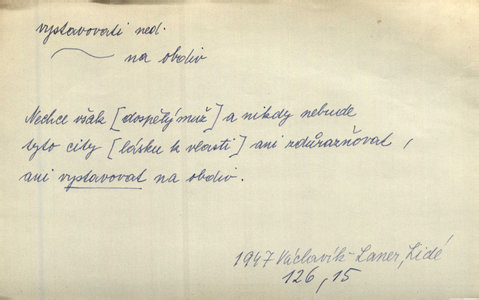 vystavovati ned.
na obdiv
Nechce však [dospělý muž] a nikdy nebude
tyto city [lásku k vlasti] ani zdůrazňovat,
ani vystavovat na obdiv.
1947 Václavík-Laner, Lidé
126, 15